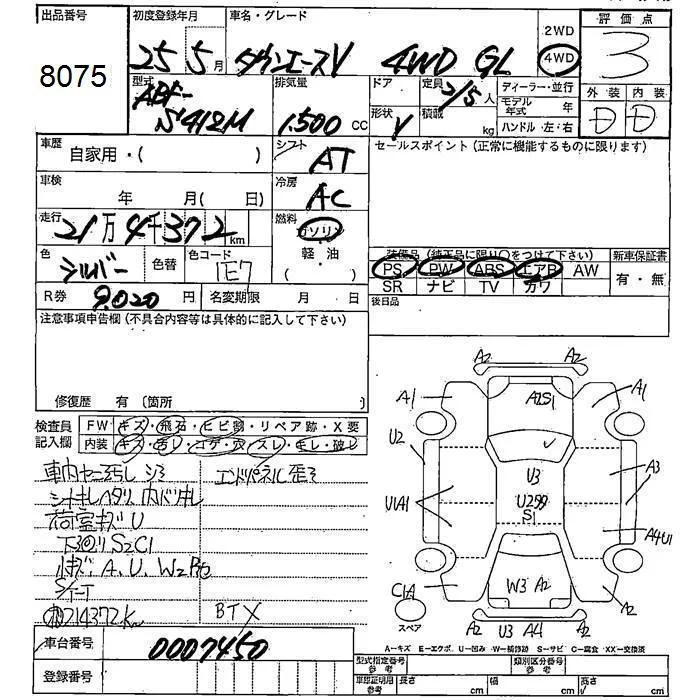 出品番号
8075
初度登録年月
25 5月
車名・グレード
タウンエースV 4WD GL
2WD
4WD
評価点
3
外装 内装
D D
型式
ABF-
S412M
排気量
1.500 CC
ドア
形状
V
定員
2/5人
積載
kg
ディーラー・並行
モデル年式 年
ハンドル・左・右
車歴
自家用・( )
シフト
AT
セールスポイント(正常に機能するものに限ります)
車検
年 月( 日)
冷房
AC
走行
21万4千372km
燃料
ガソリン
軽・油
色
シルバー
色替
色コード
1E7
装備品(純正品に限り○をつけて下さい)
PS PW ABS エアB AW
SR ナビ TV カワ
新車保証書
有・無
R券 9.020円
名変期限 月 日
後日品
注意事項申告欄(不具合内容等は具体的に記入して下さい)
修復歴 有〔箇所 〕
検査員記入欄
FW キズ・飛石・ヒビ割・リペア跡・X要
内装 キズ・汚レ・コゲ・穴・スレ・キレ・破レ
車内ヤニ汚し シミ
エンドパネル歪ミ
荷室キズ U
下回り S2C1
小キズ、A、U、W2
214372Km
BTX
車台番号 0007450
登録番号
A2 A2
A1 A2S1 A1
U2
U3
A3
U1A1
U2
S1
A4U1
C1A
W3 A2
A2
スペア
A2 U3 A4 A2
A-キズ E-エクボ U-凹み W-補修跡 S-サビ C-腐食 XX-交換済
型式指定番号 参考
類別区分番号 参考
車庫証明用 参考
長さ cm
幅 cm
高さ cm